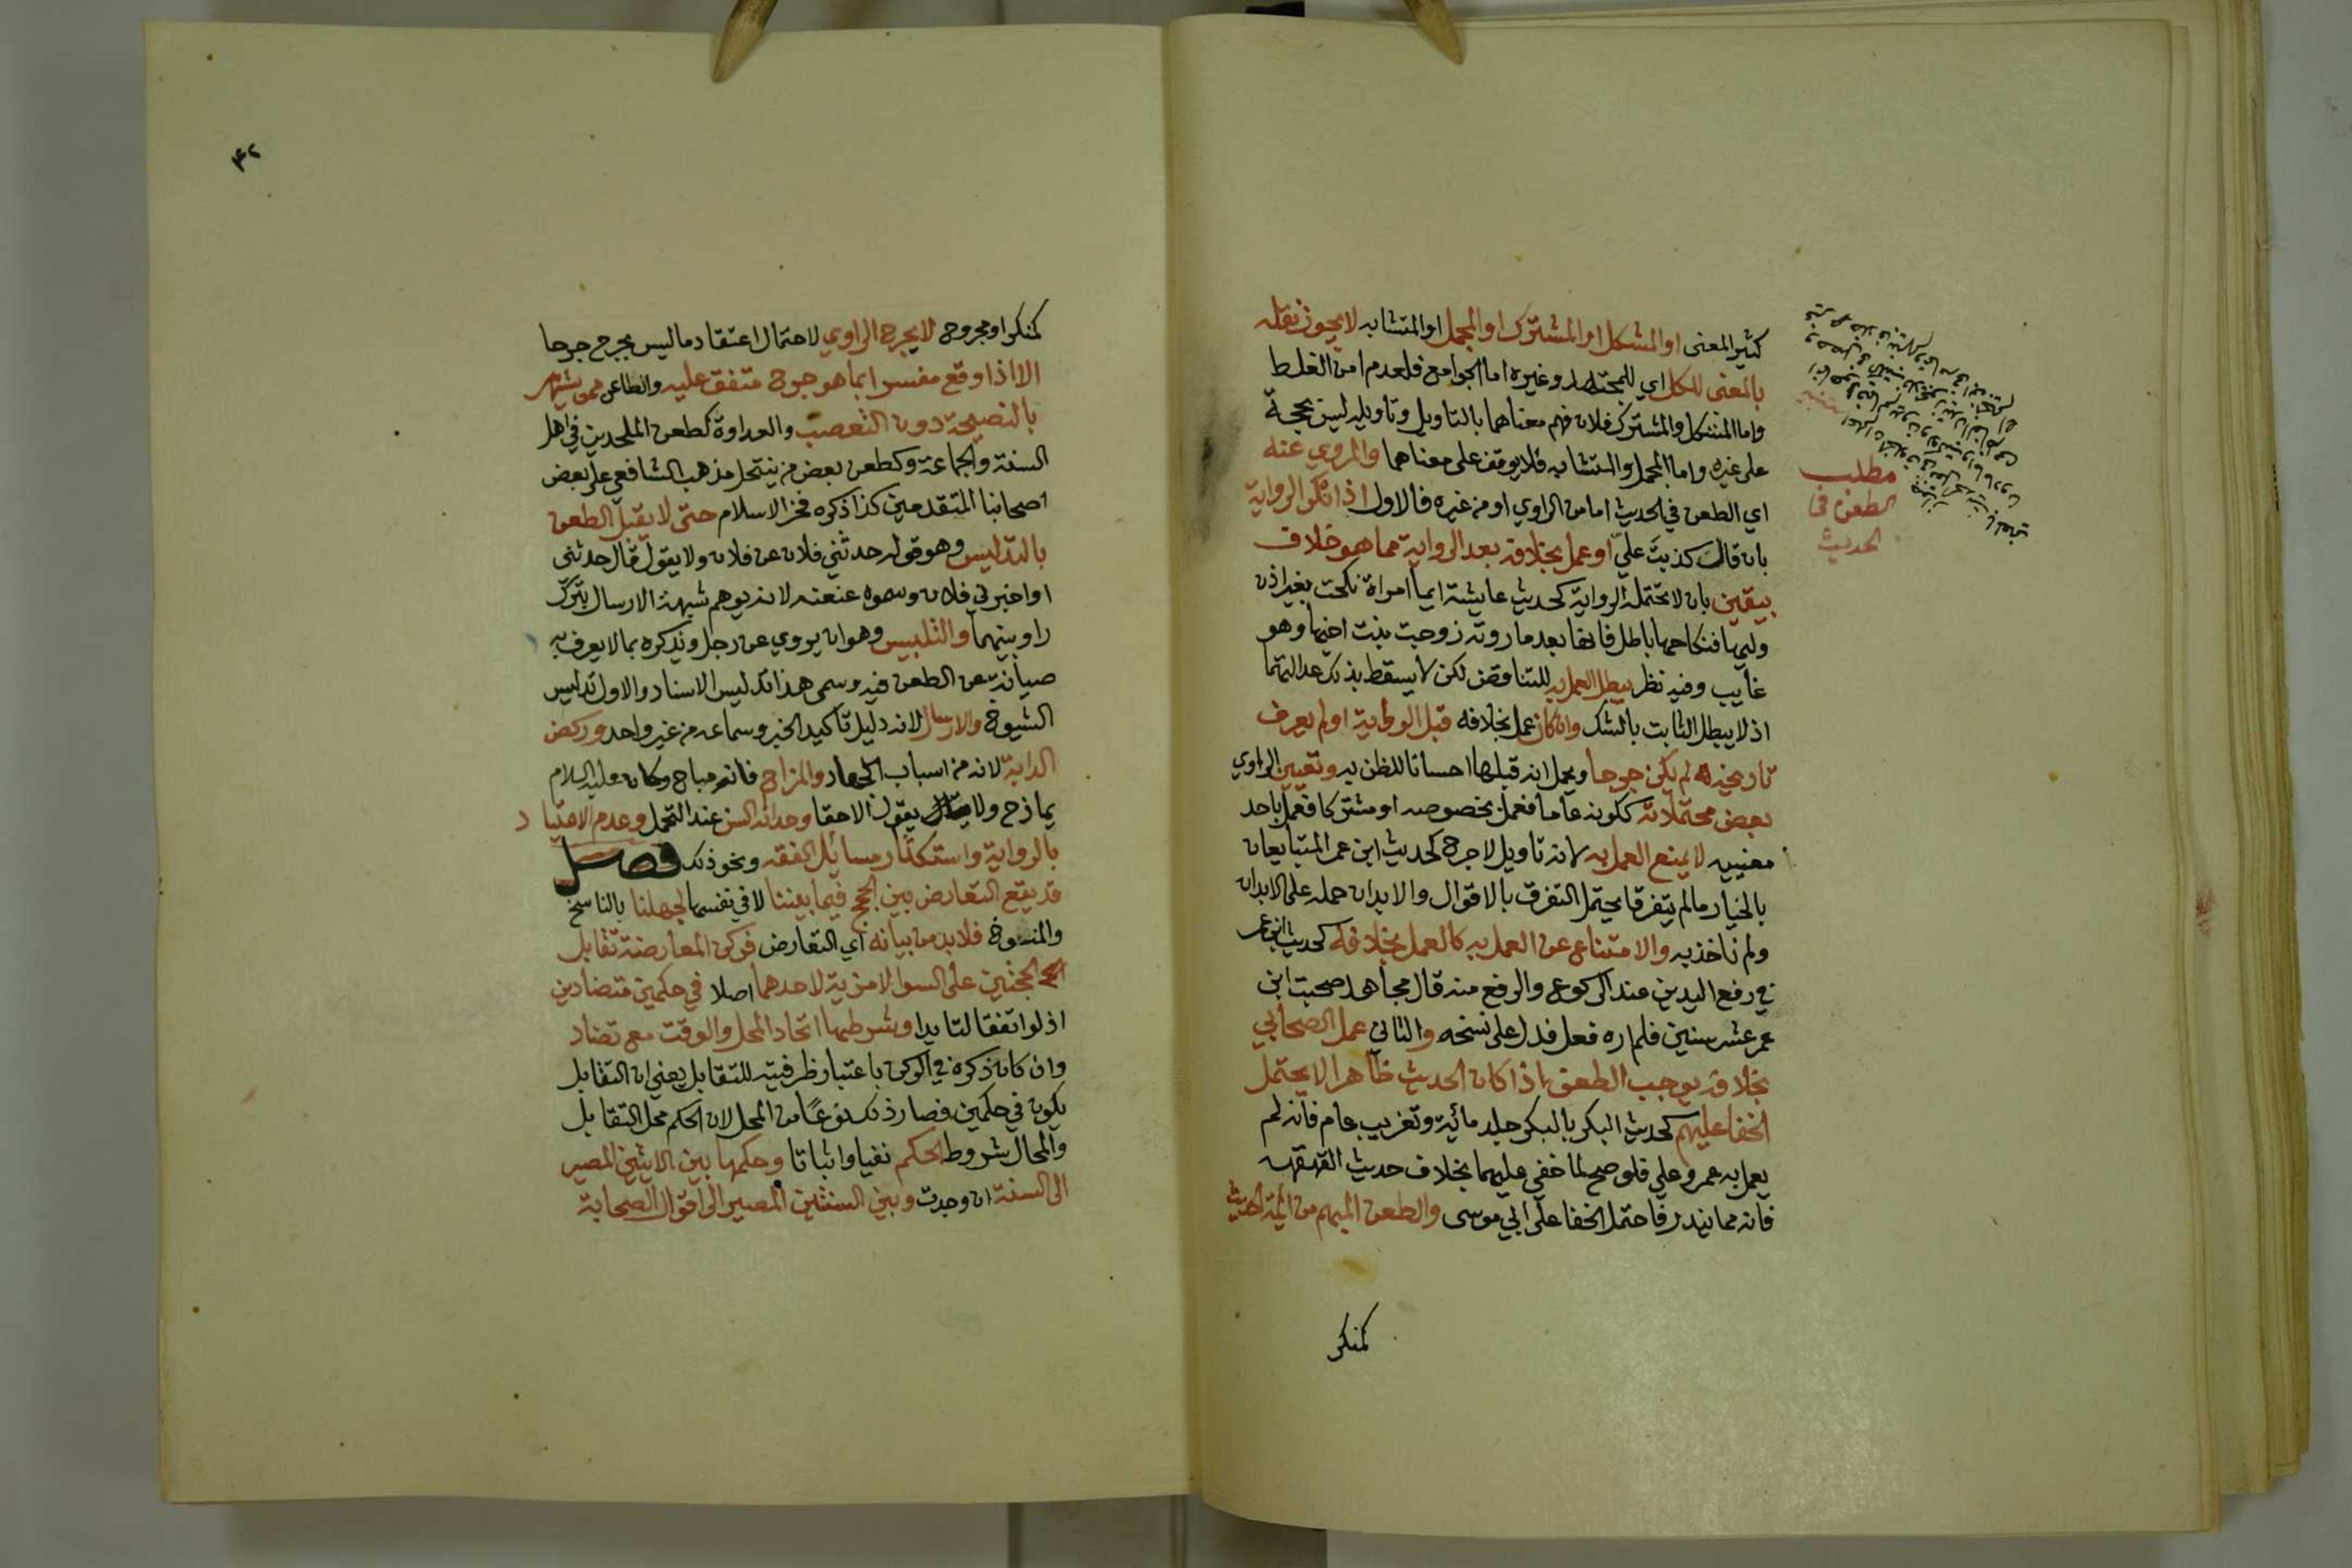 كثير المعنى او المشكل او المشترك او المجمل او المتشابه لا يجوز نقله
بالمعنى للكل اي للمجتهد وغيره اما الجوامع فلعدم امن الغلط
واما المشكل والمشترك فلان فهم معناهما بالتاويل وتاويله ليس بحجة
على غيره واما المجمل والمتشابه فلا يوقف على معناهما والمروي عنه
اي الطعن في الحديث اما من الراوي او من غيره فالاول اذا انكر الرواية
بان قال كذبت علي او عمل بخلافه بعد الرواية مما هو خلاف
بيقين بان لا تحتمله الرواية كحديث عايشة ايما امراة نكحت بغير اذن
وليها فنكاحها باطل فانها بعد ما روته زوجت بنت اخيها وهو
غايب وفيه نظر يبطل العمل به للتناقض لكن لا يسقط بذلك عدالتهما
اذ لا يبطل الثابت بالشك وان كان عمل بخلافه قبل الرواية او لم يعرف
تاريخه لم يكن جرحا ويحمل انه قبلها احسانا للظن به وتعيين الراوي
بعض محتملاته ككونه عاما فعمل بخصوصه او مشتركا فعمل باحد
معنييه لا يمنع العمل به لانه تاويل لا جرح كحديث ابن عمر المتبايعان
بالخيار ما لم يتفرقا يحتمل التفرق بالاقوال والابدان حمله على الابدان
ولم ناخذ به والامتناع عن العمل به كالعمل بخلافه كحديث ابن عمر
في رفع اليدين عند الركوع والرفع منه قال مجاهد صحبت ابن
عمر عشر سنين فلم اره فعل فدل على نسخه والثاني عمل الصحابي
بخلافه يوجب الطعن اذا كان الحديث ظاهرا لا يحتمل
الخفا عليهم كحديث البكر بالبكر جلد مائة وتغريب عام فانه لم
يعمل به عمر وعلي فلو صح لما خفي عليهما بخلاف حديث القهقهه
فانه مما يندر فاحتمل الخفا على ابي موسى والطعن المبهم من ائمة الحديث
كمنكر
مطلب
الطعن في
الحديث
٤٢
كمنكر او مجروح لا يجرح الراوي لاحتمال اعتقاد ما ليس بجرح جرحا
الا اذا وقع مفسرا بما هو جرح متفق عليه والطاعن ممن يشتهر
بالنصيحة دون التعصب والعداوة كطعن الملحدين في اهل
السنة والجماعة وكطعن بعض من ينتحل مذهب الشافعي على بعض
اصحابنا المتقدمين كذا ذكره فخر الاسلام حتى لا يقبل الطعن
بالتدليس وهو قوله حدثني فلان عن فلان ولا يقول قال حدثني
او اخبرني فلان وسموه عنعنه لانه يوهم شبهة الارسال بترك
راو بينهما والتلبيس وهو ان يروي عن رجل ويذكره بما لا يعرف به
صيانة عن الطعن فيه وسمى هذا تدليس الاسناد والاول تدليس
الشيوخ والارسال لانه دليل تاكيد الخبر وسماعه من غير واحد وركض
الدابة لانه من اسباب الجهاد والمزاح فانه مباح وكان عليه السلام
يمازح ولا يقول الا حقا وحداثة السن عند التحمل وعدم الاعتياد
بالرواية واستكثار مسائل الفقه ونحو ذلك فصل
قد يقع التعارض بين الحجج فيما بيننا لا في نفسها لجهلنا بالناسخ
والمنسوخ فلا بد من بيانه اي التعارض فركن المعارضة تقابل
الحجتين على السوا لا مزية لاحدهما اصلا في حكمين متضادين
اذ لو اتفقا لتايدا وشرطها اتحاد المحل والوقت مع تضاد
وان كان ذكره في الركن باعتبار ظرفيته للتقابل يعني ان التقابل
يكون في حكمين فصار ذلك نوعا من المحل لان الحكم محل التقابل
والمحال شروط الحكم نفيا واثباتا وحكمها بين الايتين المصير
الى السنة ان وجدت وبين السنتين المصير الى اقوال الصحابة